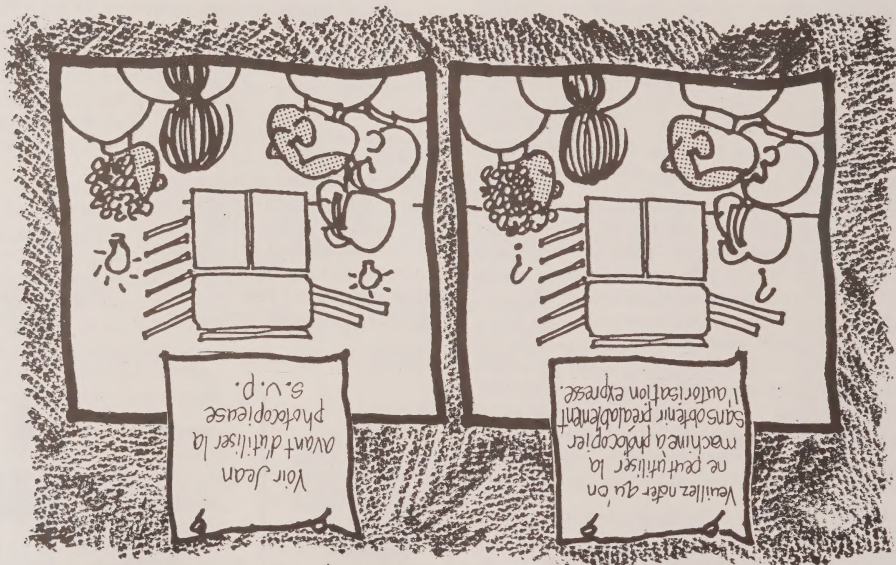 Veuillez noter qu'on
ne peut utiliser la
machine à photocopier
sans obtenir préalablement
l'autorisation expresse.
?
?
Voir Jean
avant d'utiliser la
photocopieuse
S.V.P.